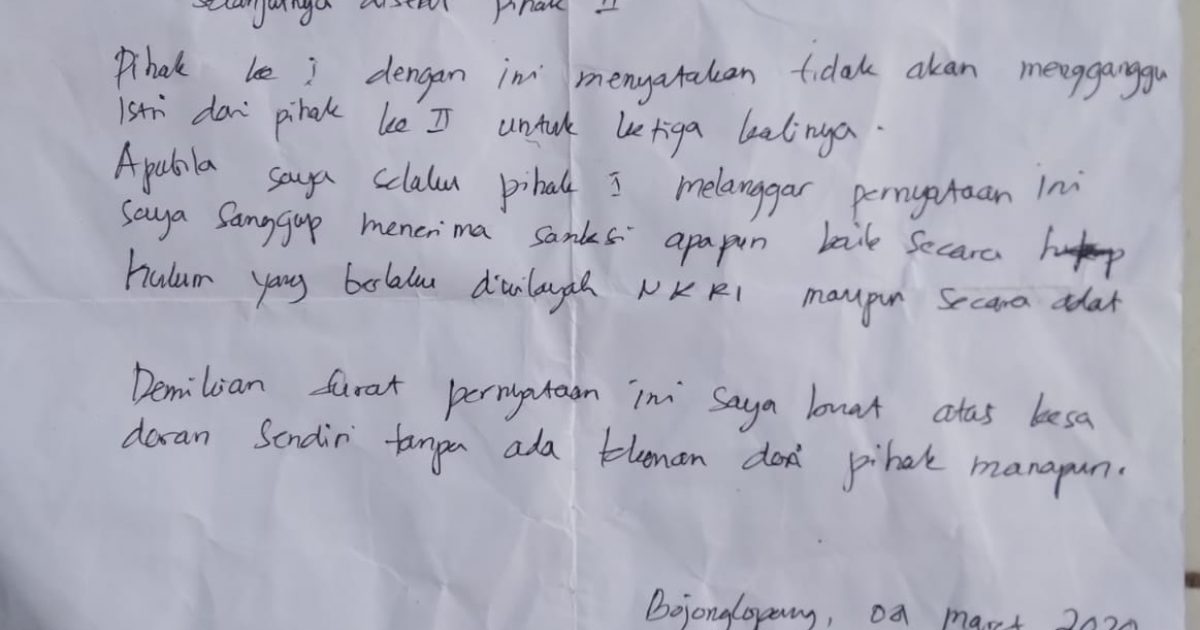 selanjutnya disebut pihak II
Pihak ke I dengan ini menyatakan tidak akan mengganggu
Istri dari pihak ke II untuk ketiga kalinya.
Apabila saya selaku pihak I melanggar pernyataan ini
saya sanggup menerima sanksi apapun baik secara
hukum yang berlaku diwilayah NKRI maupun secara adat
Demikian surat pernyataan ini saya buat atas kesa
daran sendiri tanpa ada tekanan dari pihak manapun.
Bojonglopang, maret 2020